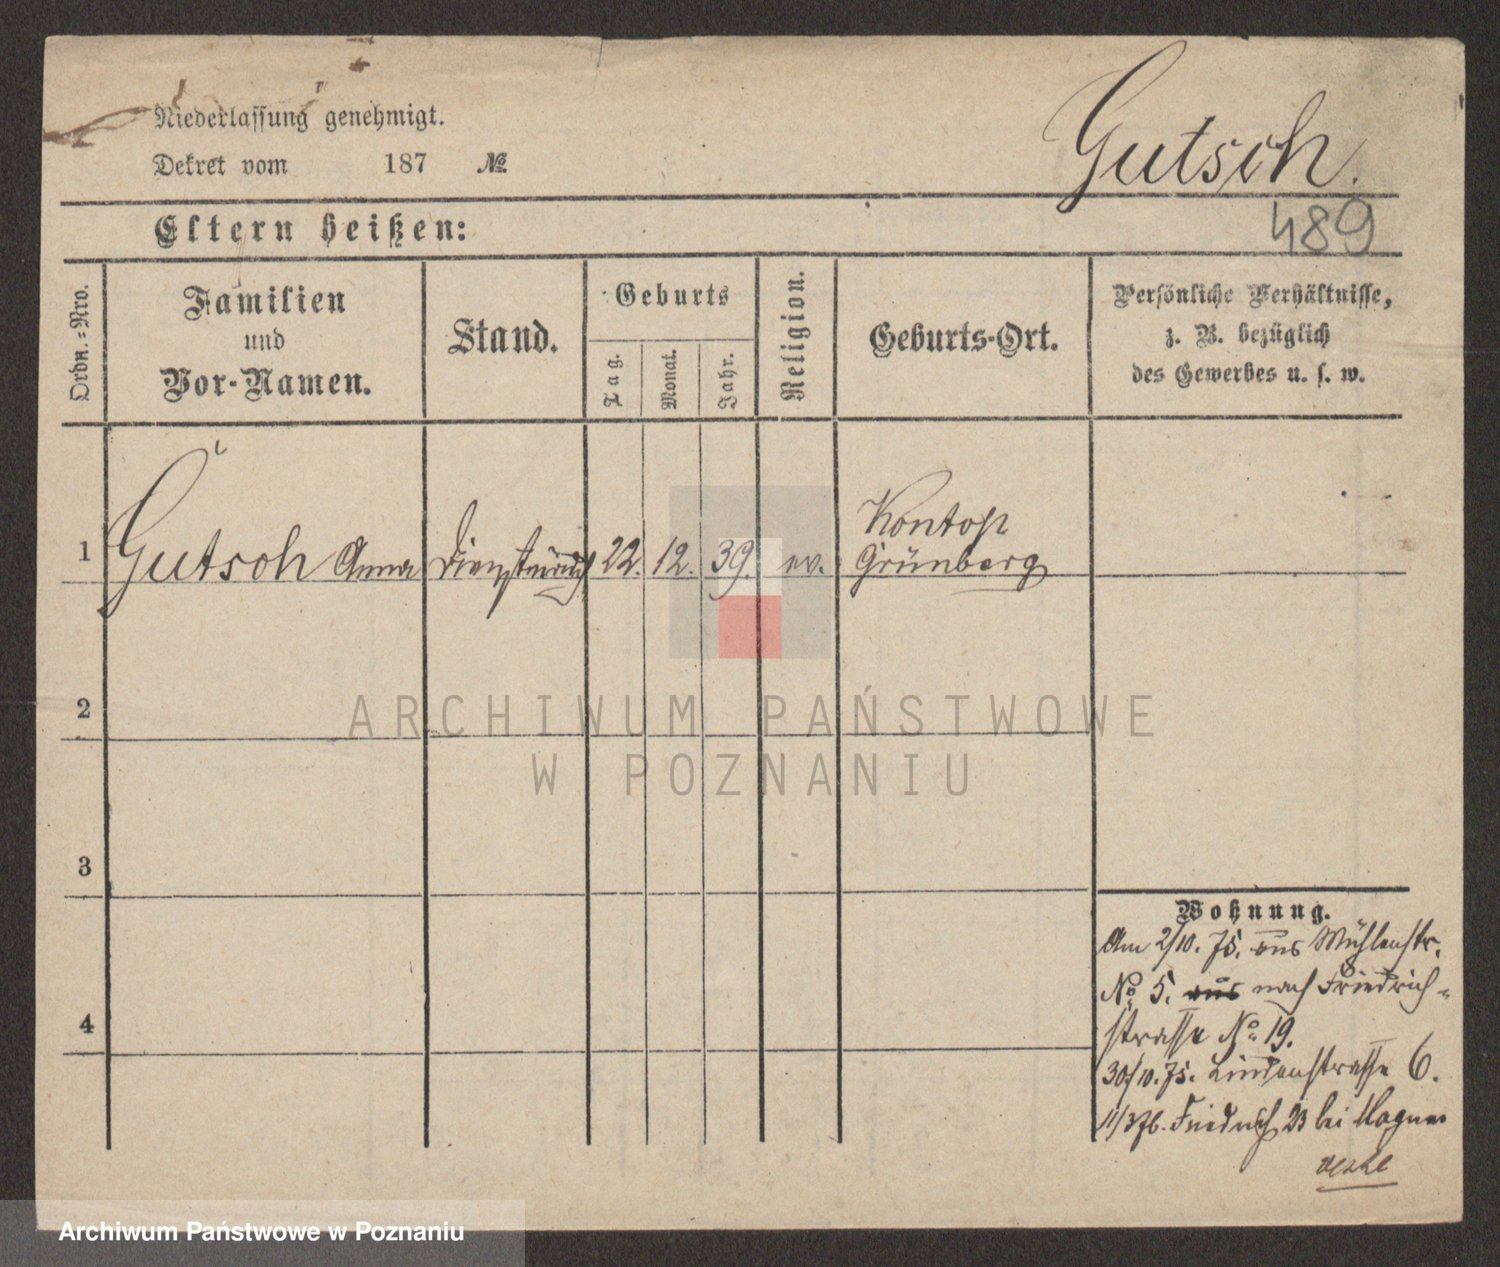 Niederlassung genehmigt.
Dekret vom 187 №
Gutsch.
489
Eltern heißen:
Ordn.=Nro.
Familien
und
Vor-Namen.
Stand.
Geburts
Tag.
Monat.
Jahr.
Religion.
Geburts-Ort.
Persönliche Verhältnisse,
z. B. bezüglich
des Gewerbes u. s. w.
1 Gutsch Anna 22. 12. 39. ev. Kontop
Grünberg
2
3
4
Wohnung.
Am 2/10. 75. aus Mühlenstr.
No. 5. aus nach Friedrich-
strasse No. 19.
30/10. 75. Lindenstrasse 6.
11/3 76. Friedrich 23 bei Magnus
ARCHIWUM PAŃSTWOWE
W POZNANIU
Archiwum Państwowe w Poznaniu